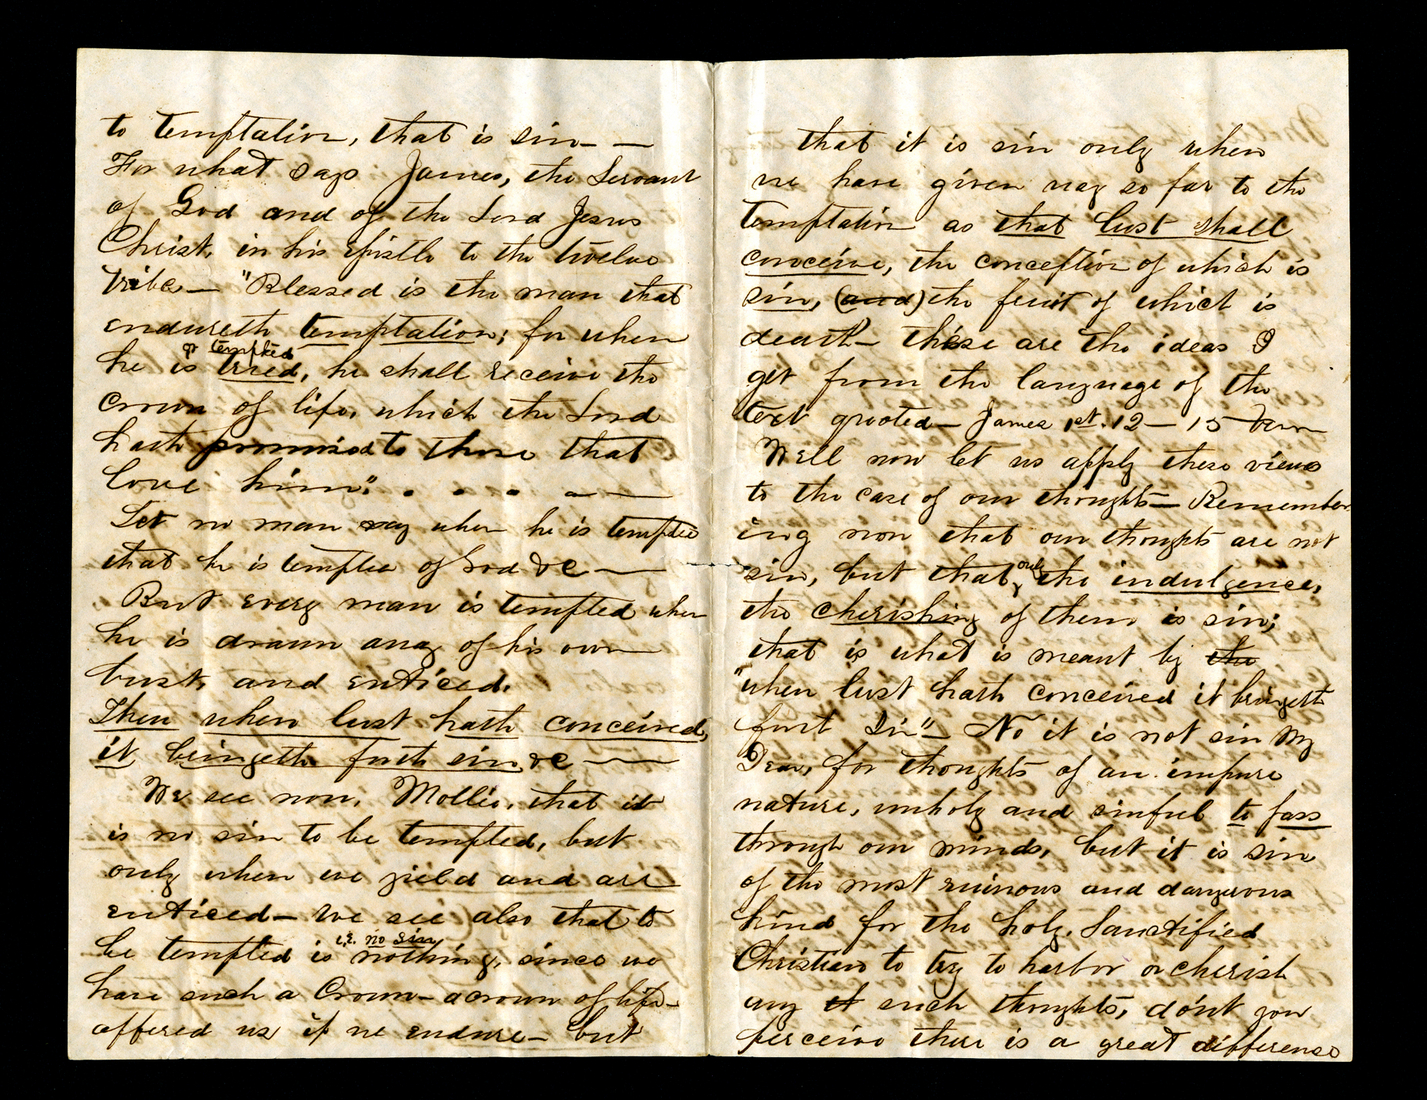 to temptation, that is sin — —
For what says James, the Servant
of God and of the Lord Jesus
Christ, in his Epistle to the twelve
tribes — "Blessed is the man that
endureth temptation; for when
or tempted
he is tried, he shall receive the
crown of life, which the Lord
hath promised to those that
love him". . . . — —
Let no man say when he is tempted
that he is tempted of God &c —
But every man is tempted when
he is drawn away of his own
lust, and enticed.
Then when lust hath conceived,
it bringeth forth sin &c —
We see now, Mollie, that it
is no sin to be tempted, but
only when we yield and are
enticed — We see also that to
i.e. no sin
be tempted is nothing, since we
have such a Crown — a crown of life —
offered us if we endure — but
that it is sin only when
we have given way so far to the
temptation as that lust shall
conceive, the conception of which is
sin, (and) the fruit of which is
death — these are the ideas I
get from the language of the
text quoted — James 1st. 12 — 15 Vern
Well now let us apply these views
to the case of our thoughts — Remember
ing now that our thoughts are not
sin, but that only the indulgence,
the cherishing of them is sin;
that is what is meant by the
"when lust hath conceived it bringeth
fort Sin" — No it is not sin My
Dear, for thoughts of an impure
nature, unholy and sinful to pass
through our minds, but it is sin
of the most ruinous and dangerous
kind for the holy, Sanctified
Christian to try to harbor or cherish
any such thoughts, dont you
perceive there is a great difference